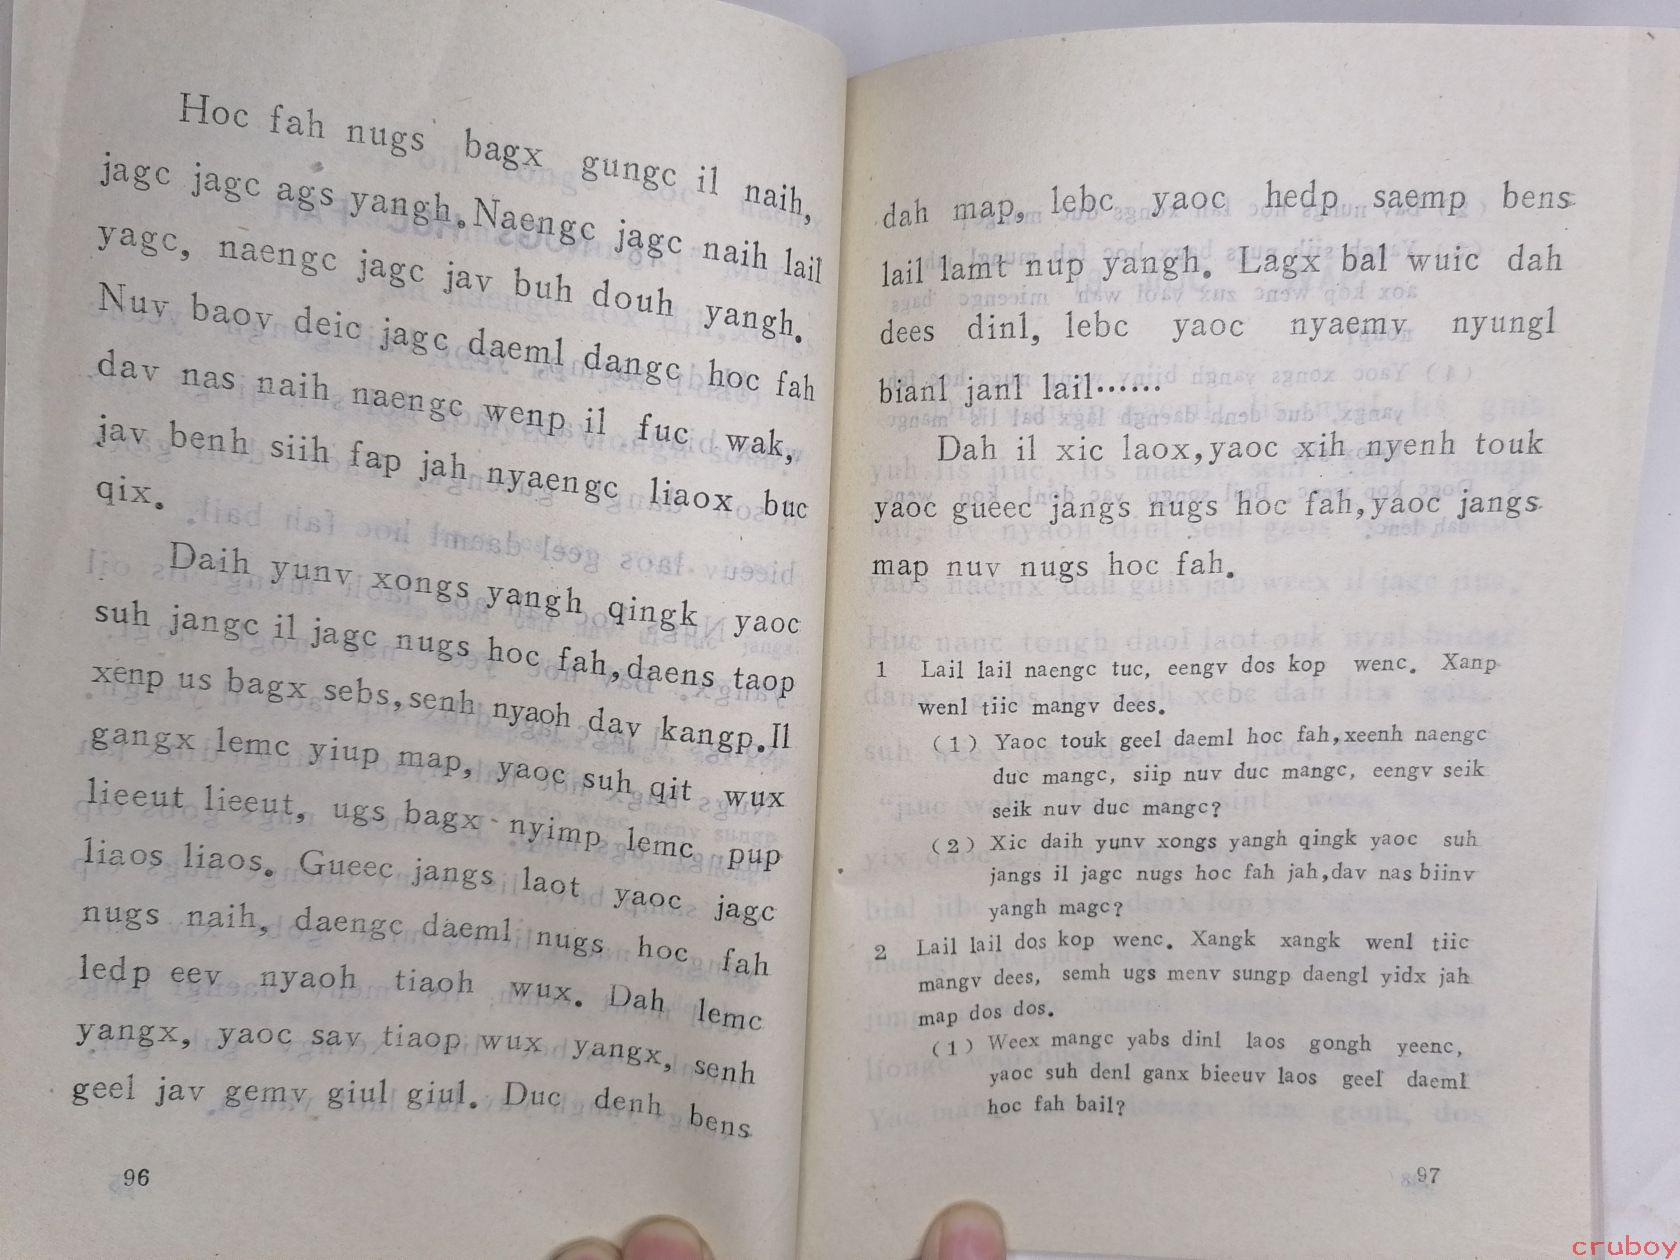 Hoc fah nugs bagx gungc il naih,
jagc jagc ags yangh. Naengc jagc naih lail
yagc, naengc jagc jav buh douh yangh.
Nuv baov deic jagc daeml dangc hoc fah
dav nas naih naengc wenp il fuc wak,
jav benh siih fap jah nyaengc liaox buc
qix.
Daih yunv xongs yangh qingk yaoc
suh jangc il jagc nugs hoc fah, daens taop
xenp us bagx sebs, senh nyaoh dav kangp. Il
gangx lemc yiup map, yaoc suh qit wux
lieeut lieeut, ugs bagx nyimp lemc pup
liaos liaos. Gueec jangs laot yaoc jagc
nugs naih, daengc daeml nugs hoc fah
ledp eev nyaoh tiaoh wux. Dah lemc
yangx, yaoc sav tiaop wux yangx, senh
geel jav gemv giul giul. Duc denh bens
96
dah map, lebc yaoc hedp saemp bens
lail lamt nup yangh. Lagx bal wuic dah
dees dinl, lebc yaoc nyaemv nyungl
bianl janl lail……
Dah il xic laox, yaoc xih nyenh touk
yaoc gueec jangs nugs hoc fah, yaoc jangs
map nuv nugs hoc fah.
1 Lail lail naengc tuc, eengv dos kop wenc. Xanp
wenl tiic mangv dees.
(1) Yaoc touk geel daeml hoc fah, xeenh naengc
duc mangc, siip nuv duc mangc, eengv seik
seik nuv duc mangc?
(2) Xic daih yunv xongs yangh qingk yaoc suh
jangs il jagc nugs hoc fah jah, dav nas biinv
yangh magc?
2 Lail lail dos kop wenc. Xangk xangk wenl tiic
mangv dees, semh ugs menv sungp daengl yidx jah
map dos dos.
(1) Weex mangc yabs dinl laos gongh yeenc,
yaoc suh denl ganx bieeuv laos geel daeml
hoc fah bail?
97
cruboy